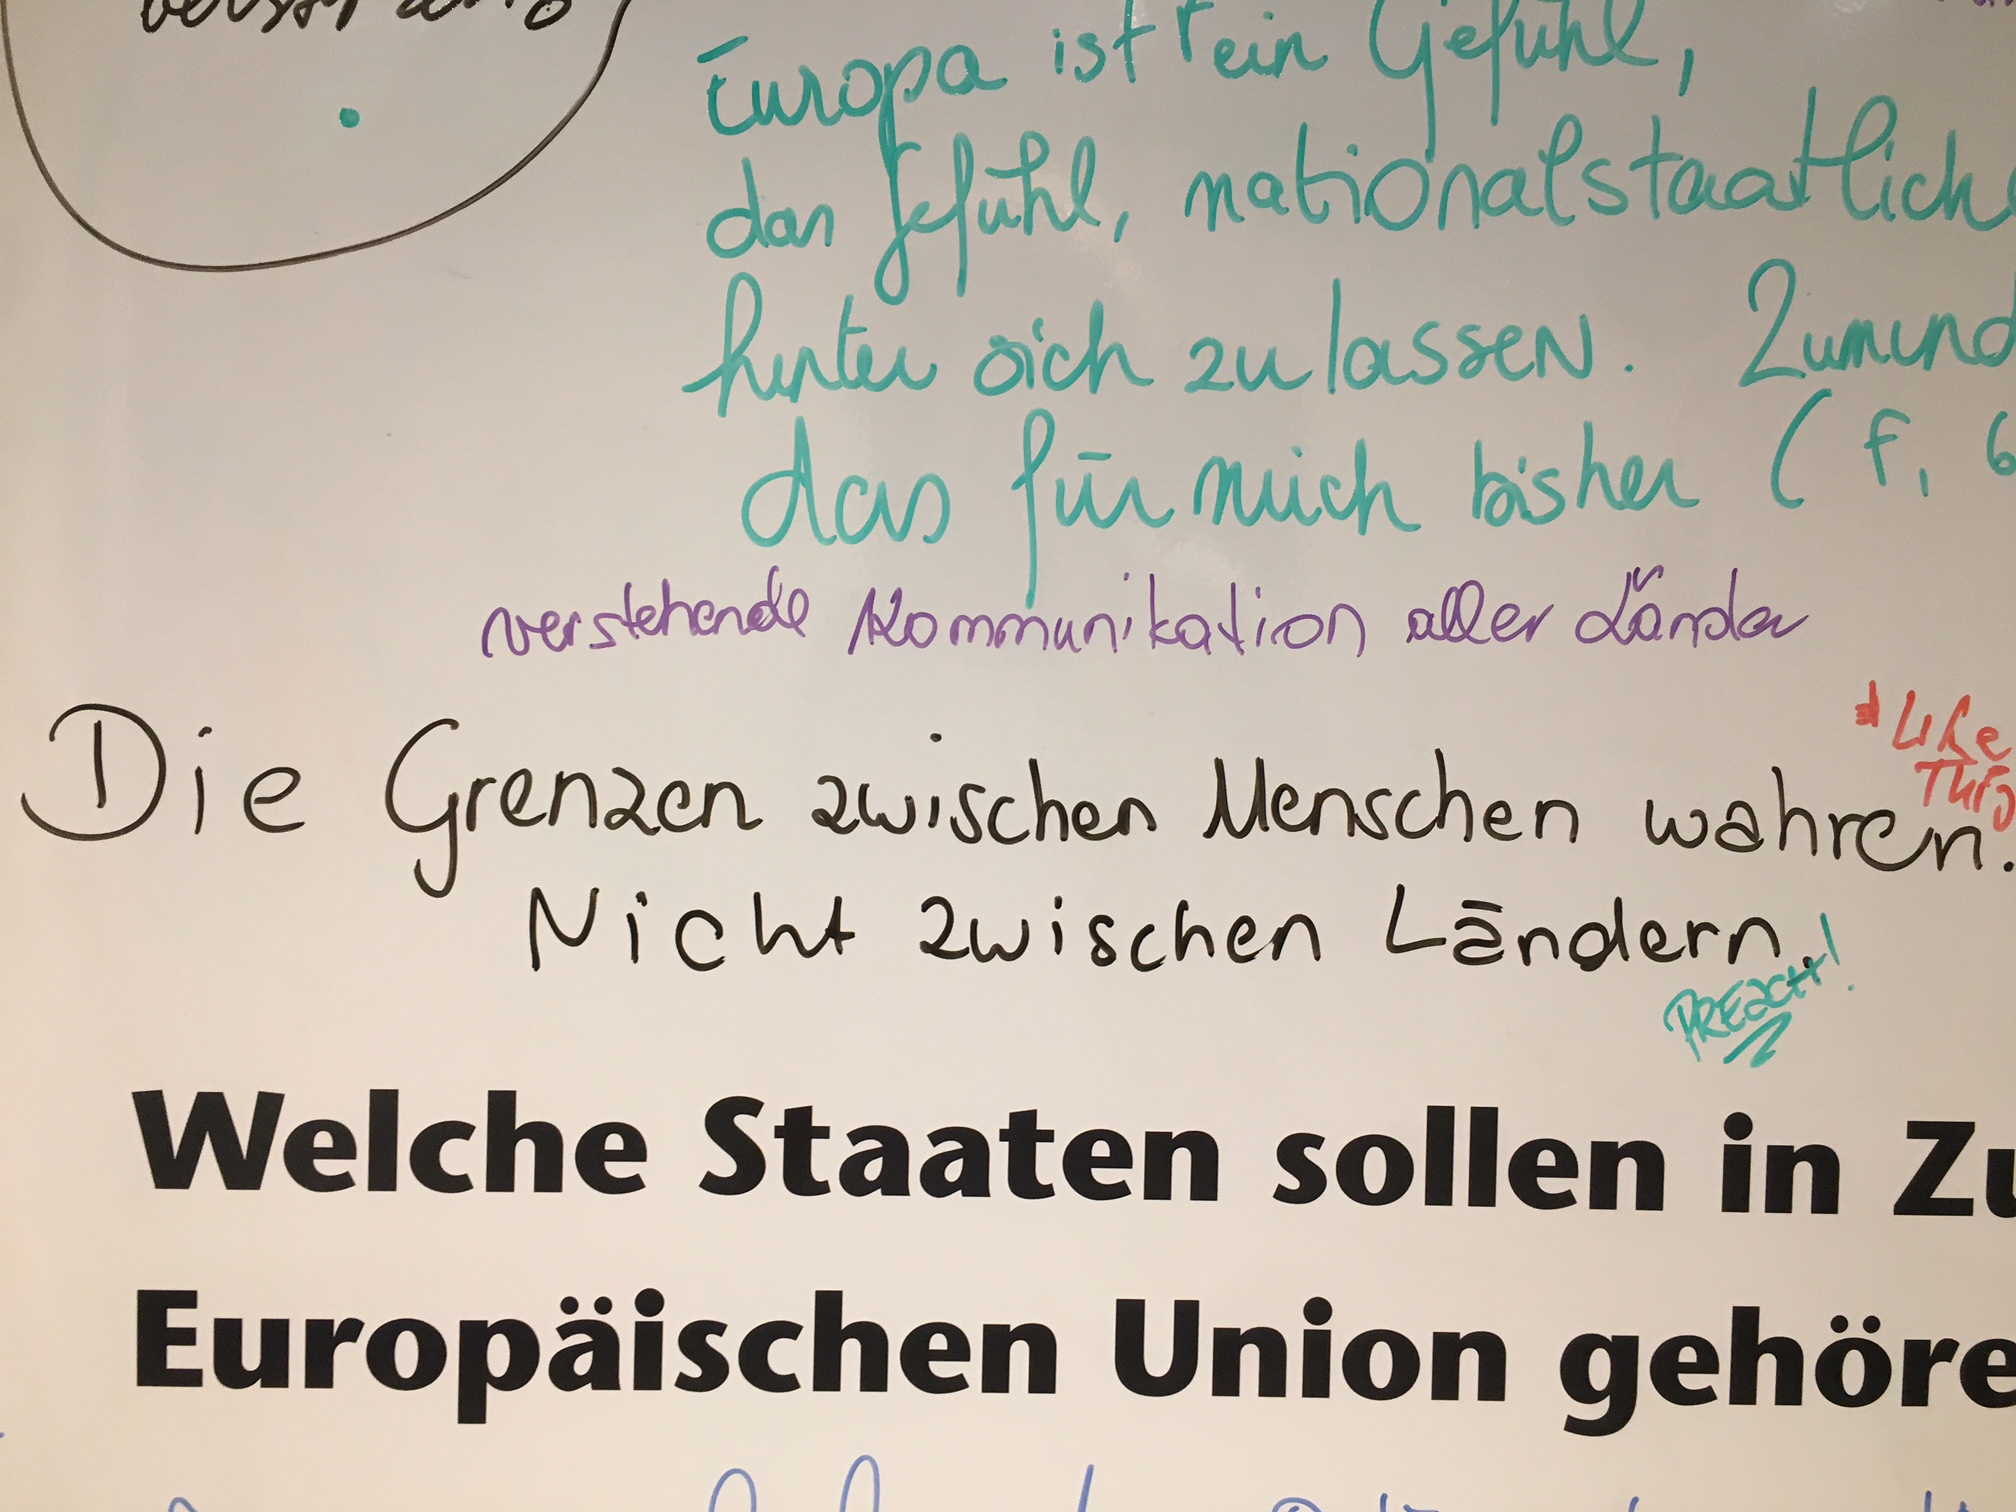 Europa ist ein Gefühl,
das Gefühl, nationalstaatlich
hinter sich zu lassen. Zumind
das für mich bisher (f, 6
verstehende Kommunikation aller Länder
Like
This
Die Grenzen zwischen Menschen wahren.
Nicht zwischen Ländern.!
PREACH!
Welche Staaten sollen in Zu
Europäischen Union gehöre